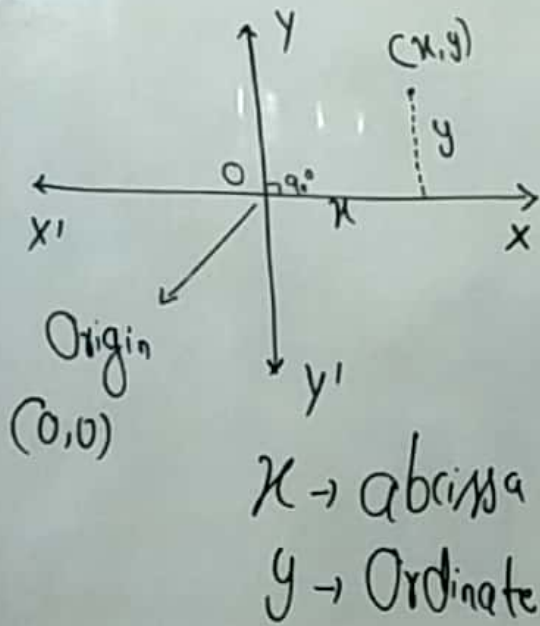 Y
(x,y)
y
O 90°
x
X'
X
Origin
(0,0)
Y'
x → abcissa
y → Ordinate